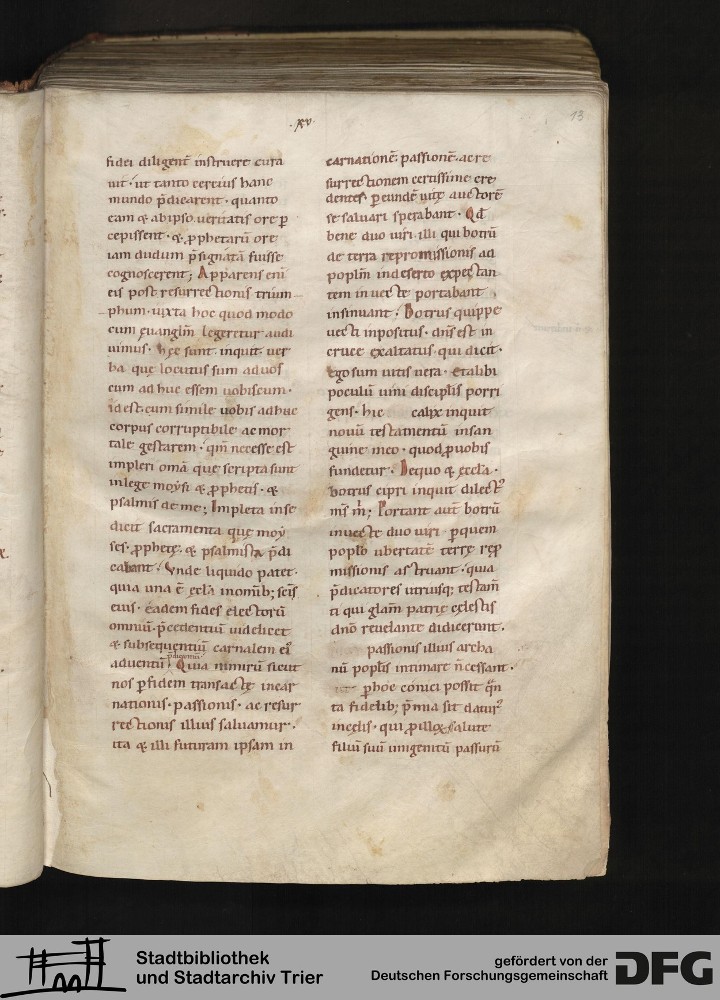 ·xv·
13
fidei diligent̄ instruere cura
uit· ut tanto cercius hanc
mundo p̄dicarent· quanto
eam & ab ipso ueritatis ore p
cepissent· & ꝓphetarū ore
iam dudum p̄signatā fuisse
cognoscerent; Apparens eni
eis post resurrectionis trium
phum· iuxta hoc quod modo
cum euangliū legeretur audi
uimus· hęc sunt inquit uer
ba que locutus sum ad uos
cum ad huc essem uobiscum·
id est cum simile uobis adhuc
corpus corruptibile ac mor
tale gestarem· qm̄ necesse est
impleri om̄a que scripta sunt
in lege moysi & ꝓphetis· &
psalmis de me; Impleta in se
dicit sacramenta quę moy
ses· ꝓphetę· & psalmista p̄di
cabant· Vnde liquido patet·
quia una ē ęcla in omib; scis
eius· eadem fides electorū
omniū· p̄cedentiū uidelicet
& subsequentiū carnalem ei
aduentū Quia nimirū sicut
nos p fidem transactę incar
nationis· passionis· ac resur
rectionis illius saluamur·
ita & illi futuram ipsam in
carnationē passionē· ac re
surrectionem certissime cre
dentes· p eundē uitę auctorē
se saluari sperabant· Qd
bene duo uiri illi qui botrū
de terra repromissionis ad
poplm̄ in deserto expectan
tem in uecte portabant
insinuant· Botrus quippe
uecti inpositus· dn̄s est in
cruce exaltatus· qui dicit·
Ego sum uitis uera· et alibi
poculū uini discipl̄is porri
gens· hic calix inquit
nouū testamentū in san
guine meo· quod ꝓ uobis
fundetur· De quo & ęcla·
botrus cipri inquit dilect
m̄s m̄; Portant aut̄ botrū
in uecte duo uiri p quem
poplo ubertatē terrę rep
missionis astruant· quia
p̄dicatores utriusq; testam̄
ti qui glam̄ patrię cęlestis
dn̄o reuelante didicerunt·
passionis illius archa
nū poplis intimare n̄ cessant·
p hoc conici possit qn̄
ta fidelib; p̄mia sit datur
in cęlis· qui ꝓ illoꝝ salute
filiū suū unigenitū passurū
Stadtbibliothek
und Stadtarchiv Trier
gefördert von der
Deutschen Forschungsgemeinschaft
DFG